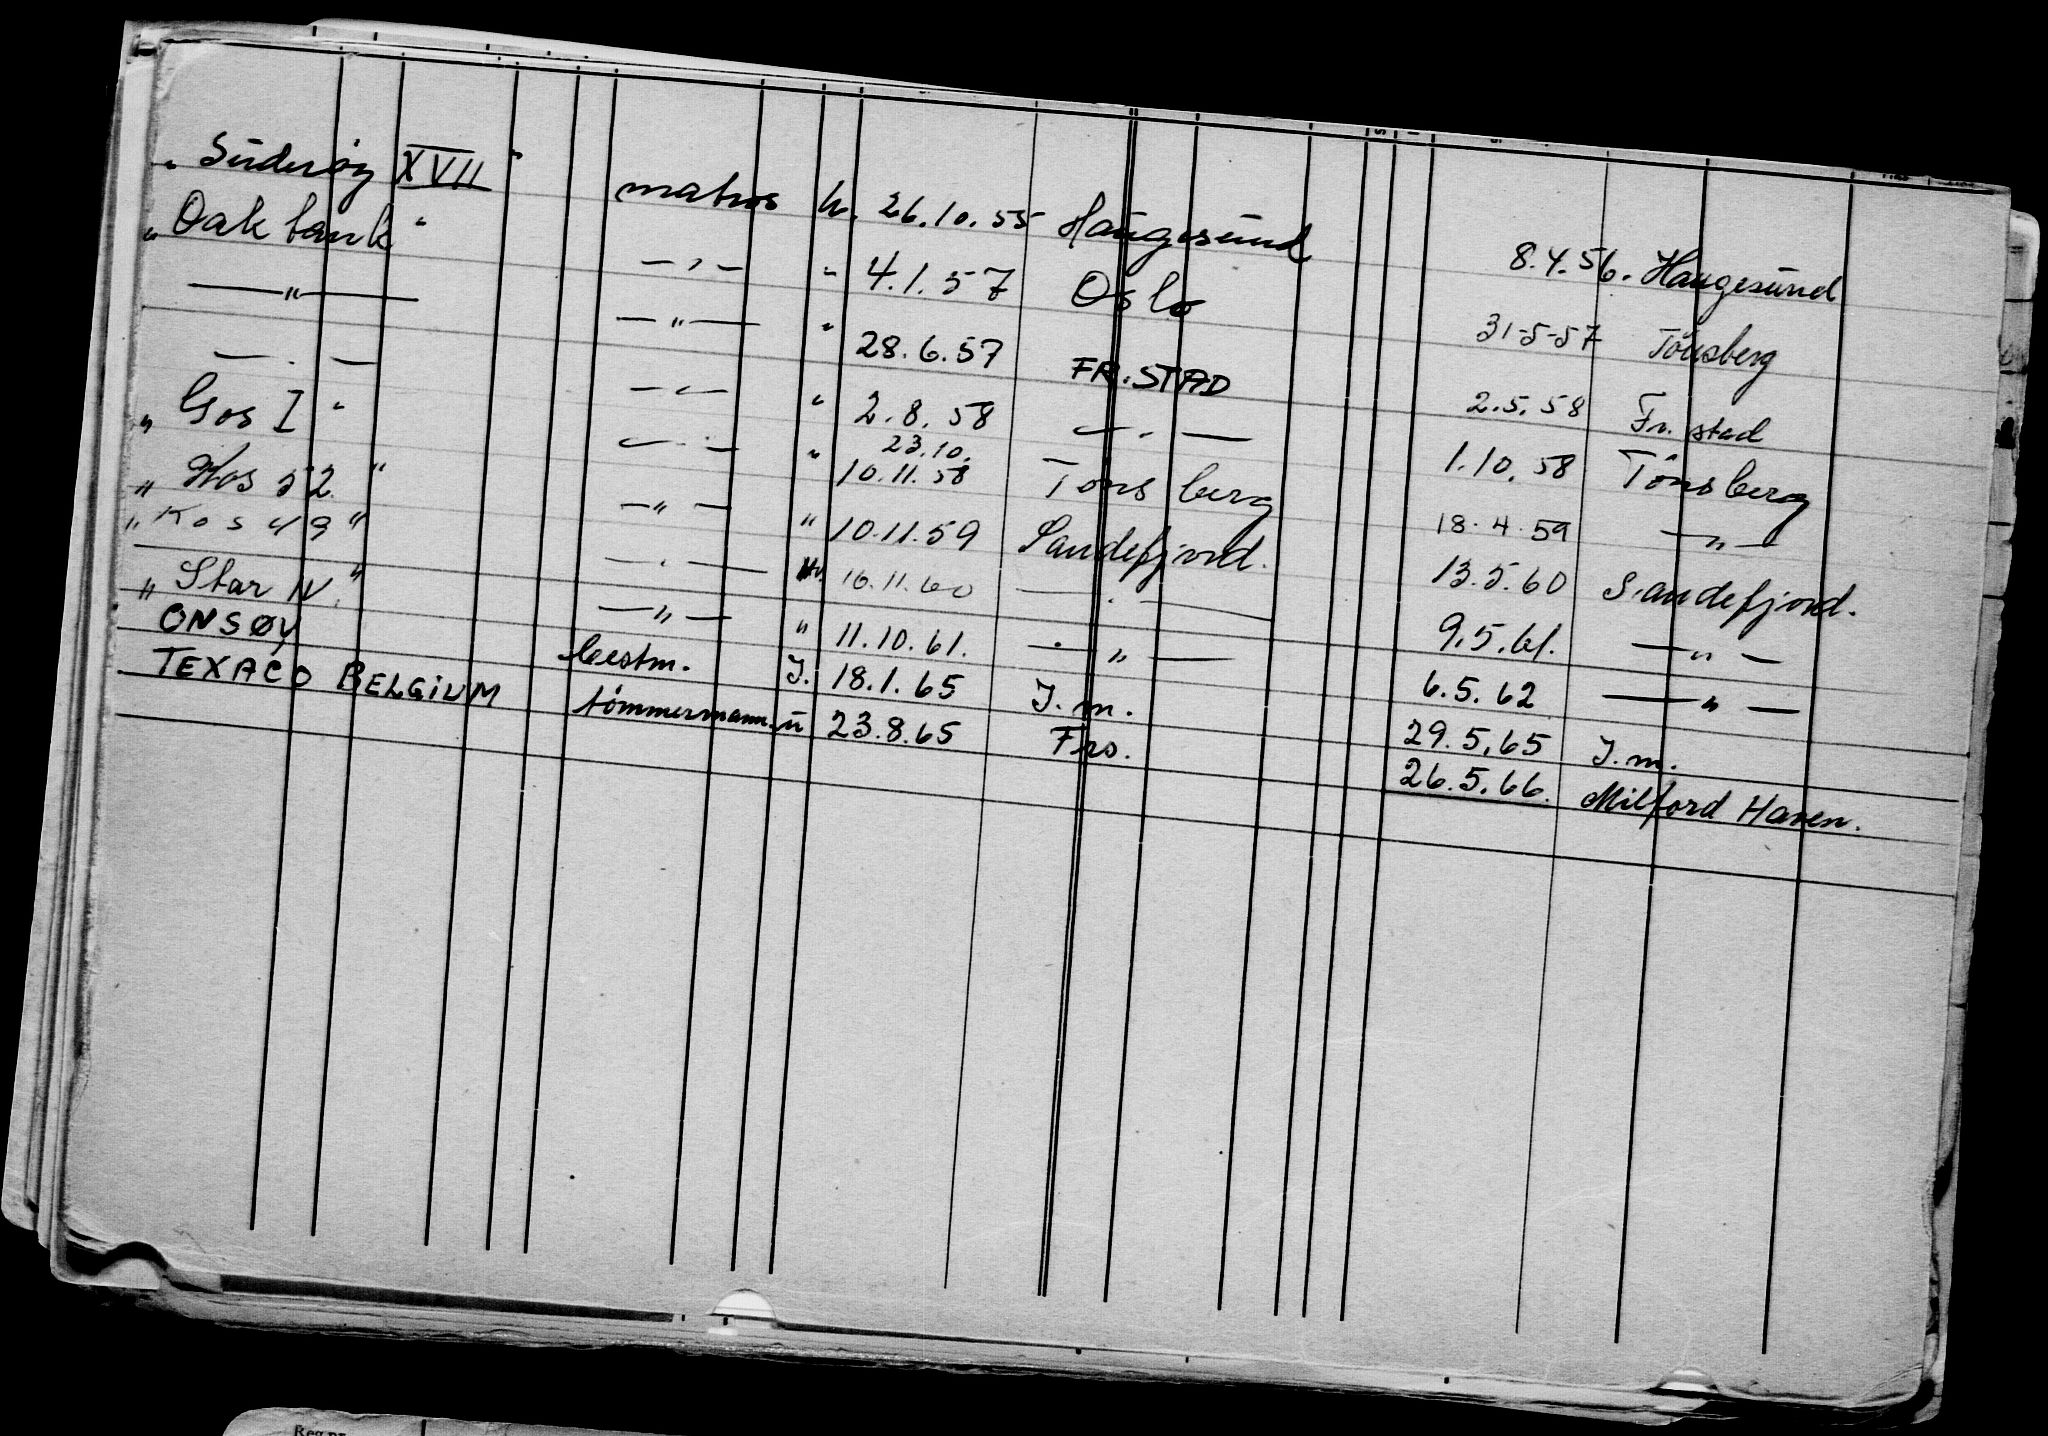 "Suderøy XVII" matros h. 26.10.55 Haugesund 8.4.56. Haugesund
"Oakbank" — " — " 4.1.57 Oslo 31-5-57 Tönsberg
— " — — " — " 28.6.57 FR.STAD 2.5.58 Fr.stad
— " — — " — " 2.8.58 — " — 1.10.58 Tönsberg
"Gos I" — " — " 23.10. 10.11.58 Tönsberg 18.4.59 — " —
"Kos 52" — " — " 10.11.59 Sandefjord. 13.5.60 Sandefjord.
"Kos 49" — " — 16.11.60 — " — 9.5.61. — " —
"Star IV." — " — " 11.10.61. — " — 6.5.62 — " —
ONSØY bestm. J. 18.1.65 J.m. 29.5.65 J.m.
TEXACO BELGiUM tömmermann. u 23.8.65 Fro. 26.5.66. Milford Haven.
Reg.nr.